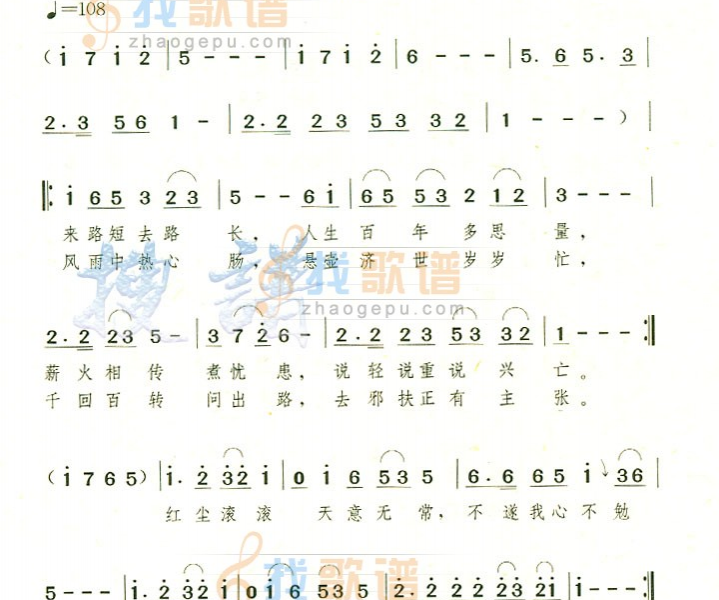 ♩=108
找歌谱
zhaogepu.com
( i 7 i 2 | 5 - - - | i 7 i 2 | 6 - - - | 5. 6 5. 3 |
2. 3 5 6 1 - | 2. 2 2 3 5 3 3 2 | 1 - - - )
‖: i 6 5 3 2 3 | 5 - - 6 i | 6 5 5 3 2 1 2 | 3 - - -
来路短去路 长，人生百 年 多思 量，
风雨中热心 肠，悬壶济 世 岁岁 忙，
搜谱
找歌谱
zhaogepu.com
2. 2 2 3 5 - | 3 7 2 6 - | 2. 2 2 3 5 3 3 2 | 1 - - - :‖
薪火相传 煮忧 患，说轻说重说 兴 亡。
千回百转 问出 路，去邪扶正有 主 张。
( i 7 6 5 ) | i. 2 3 2 i | 0 i 6 5 3 5 | 6. 6 6 5 i 3 6
红尘滚滚 天意无常，不遂我心不勉
找歌谱
zhaogepu.com
5 - - - | i. 2 3 2 i | 0 i 6 5 3 5 | 2. 2 2 2 2 3 2 i | i - - - :‖